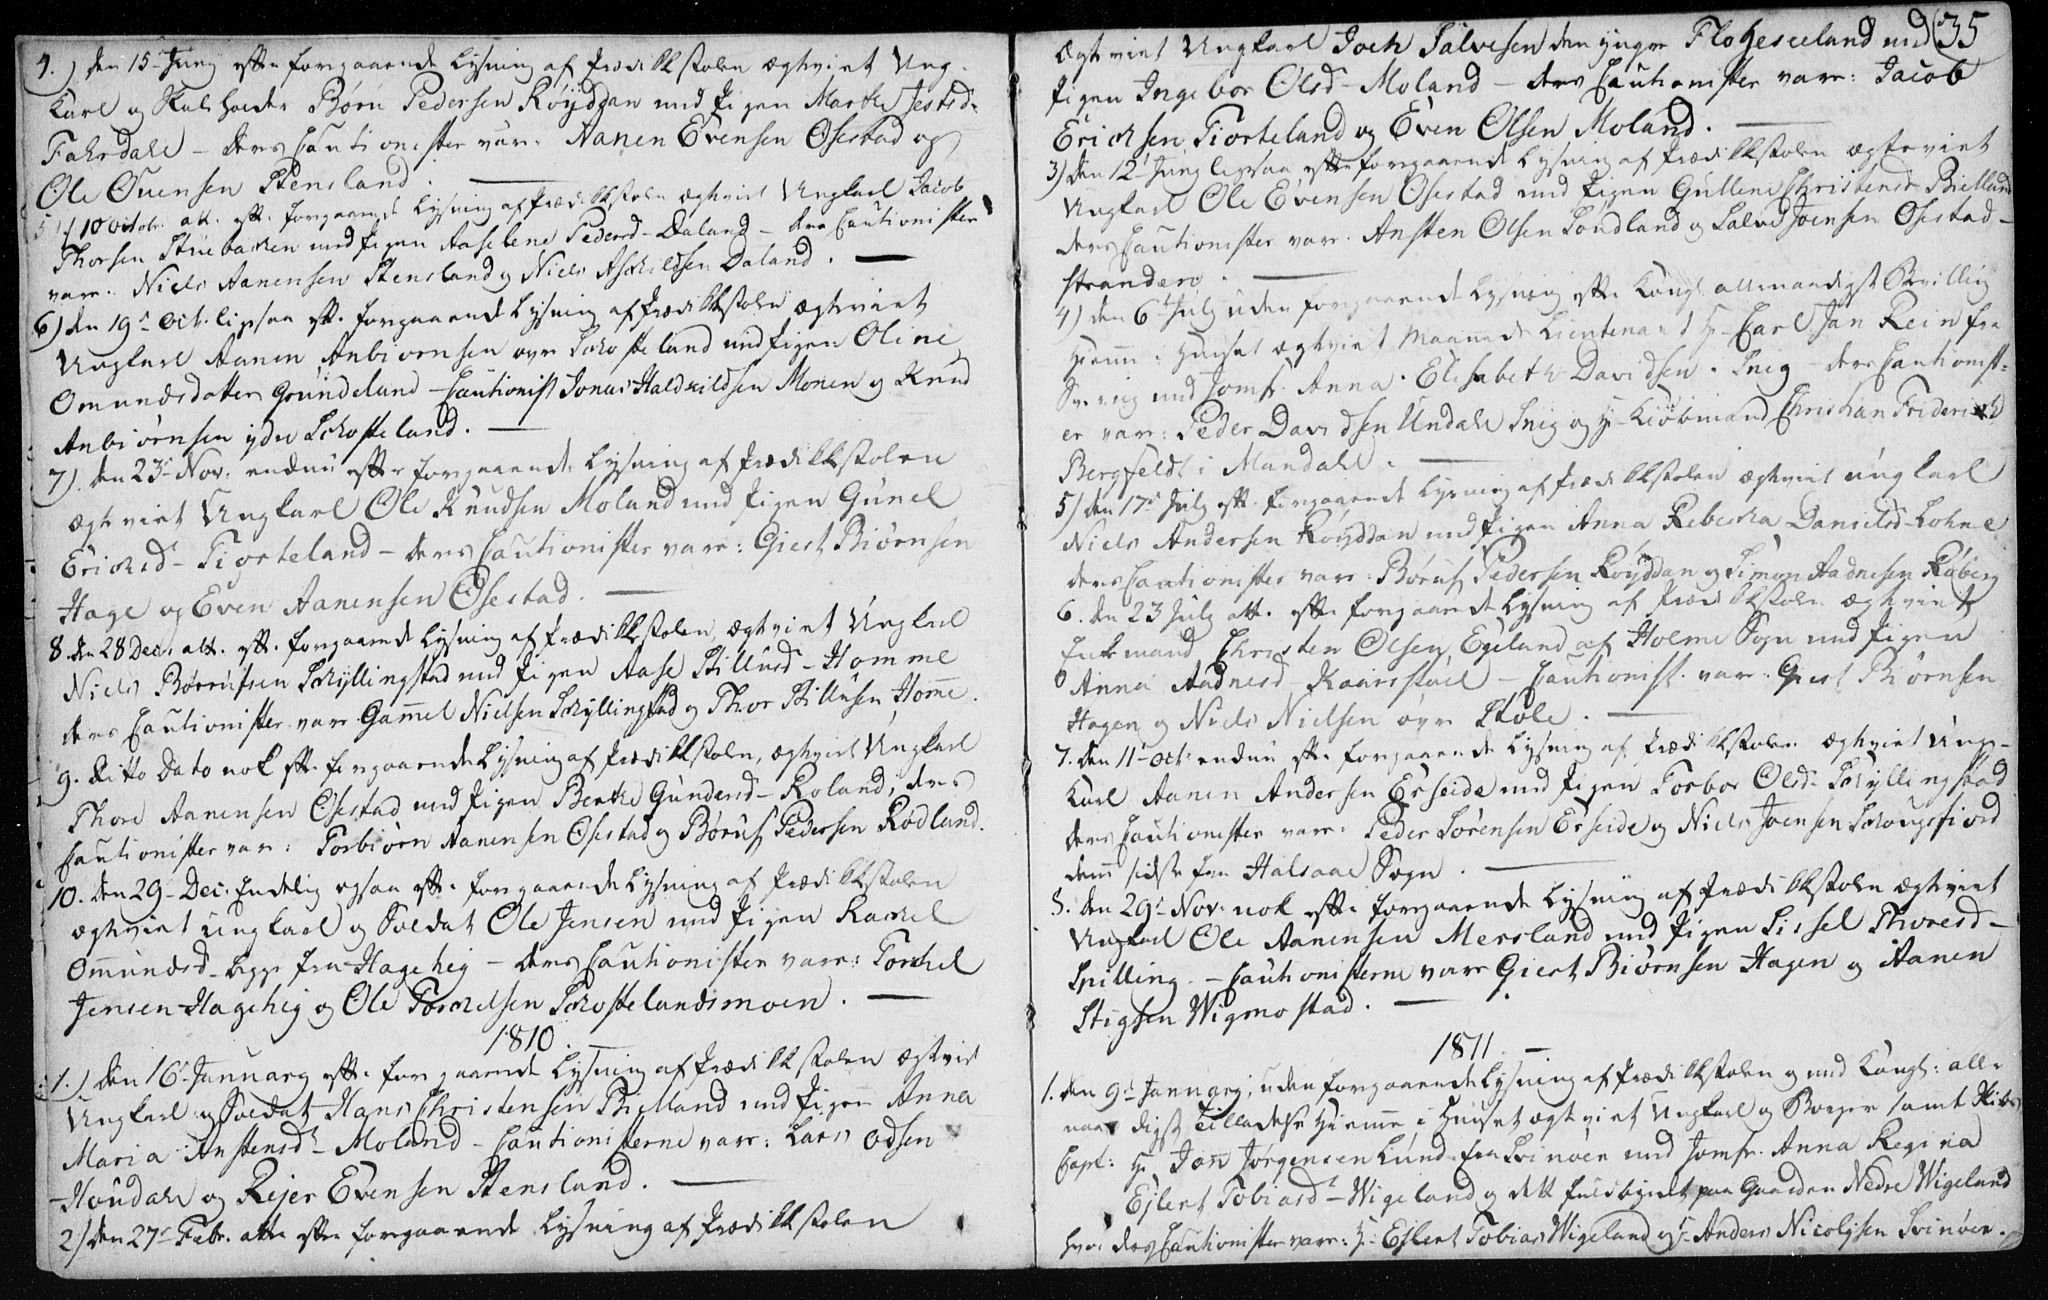 4.) den 15 Juny efter foregaaende Lysning af Prædikkstolen ægteviet Ung-
Karl og Skoleholder Børu Pedersen Røyddan med Pigen Marthe Jestsd-
Fahrdahl - deres Cautionister var: Aanen Evensen Osestad og
Ole Ouensen Stensland.
5) / 10 octobr. att. eft. foregaaende Lysning af Prædikkstolen ægteviet Ungkarl Jacob
Thorsen Struebakken med Pigen Aaselene Pedersd - Daland - dere Cautionister
vare: Niels Aanensen Stensland og Niels Askildsen Daland.
6) den 19d Oct. ligesaa eft. foregaaende Lysning af Prædikkstolen ægteviet
Ungkarl Aanen Anbiornsen øvre Schofteland med Pigen Oline
Omundsdatter Grundeland - Cautionist Jonas Haldkildsen Monen og Knud
Anbiørnsen ydre Schofteland.
7). den 23d Nov. endnu efter foregaaende Lysning af Prædikkstolen
ægteviet Ungkarl Ole Knudsen Moland med Pigen Gunel
Ericksd - Tiorteland - deres Cautionister vare: Giert Biørnsen
Hage og Even Aanensen Osestad.
8 den 28 Dec. att. eft. foregaaende Lysning af Prædikkstolen, ægteviet Ungkarl
Niels Børrufsen Schyllingstad med Pigen Aase Stillufsd - Homme
deres Cautionister vare Gammel Nielsen Schyllingstad og Thor Stillufsen Homme.
9. Ditto Dato nok eft. foregaaende Lysning af Prædikkstolen, ægteviet Ungkarl
Thore Aanensen Osestad med Pigen Berthe Gundersd - Roland, deres
Cautionister vare: Torbiørn Aanensen Osestad og Børuf Pedersen Rødland.
10. den 29 - Dec. Endelig ogsaa eft. foregaaende Lysning af Prædikkstolen
ægteviet ungkarl og Soldat Ole Jensen med Pigen Rackel
Omundsd - begge fra Hagehey - deres Cautionister vare: Torkel
Jensen Hagehey og Ole Torkelsen Schoftelandsmoen.
1810.
1.) Den 16 January eft. foregaaende Lysning af Prædikkstolen ægteviet
Ungkarl og Soldat Hans Christensen Bielland med Pigen Anna
Maria Anstensd - Moland - Cautionisterne vare: Lars Odsen
Houdahl og Rejer Evensen Stensland.
2) den 27d Febr. atter efter foregaaende Lysning af Prædikkstolen
35
ægteviet Ungkarl Joen Salvesen den yngre Flogeseeland med
Pigen Ingebor Olsd - Moland - deres Cautionister vare: Jacob
Ericksen Tiorteland og Even Olsen Moland.
3) den 12 Juny ligesaa efter foregaaende Lysning af Prædikkstolen ægteviet
Ungkarl Ole Evensen Osestad med Pigen Gulline Christensd - Bielland
deres Cautionister vare. Ansten Olsen Londland og Salve Joensen Osestad-
stranden.
4) den 6d July uden foregaaende Lysning eft. Kongl. allernaadigst Bevilling
hiemme i Huuset ægteviet Lieutenant Hr. Carl Jan Rein fra
med Jomfr. Anna Elisabeth Davidsen. Sneg - deres Cautionist-
er vare: Peder Davidsen Undahl Sneg og Hr. Kiøbmand Christian Friderich
Bergfeldt i Mandahl.
5) den 17d July eft. foregaaende Lysning af Prædikkstolen ægteviet ungkarl
Niels Andersen Røyddan med Pigen Anna Rebecka Danielsd - Lohne
deres Cautionister vare: Børuf Pedersen Røyddan og Simon Aadnesen Røberg
6. den 23 July att. eft. foregaaende Lysning af Prædikkstolen ægteviet
Enkemand Christen Olsen Egeland af Holme Sogn med Pigen
Anna Aadnesd - Kaarestad - Cautionist. vare. Giert Biørnsen
Hagen og Niels Nielsen øvre Støle.
7. den 11 - Oct. endnu eft. foregaaende Lysning af Prædikkstolen ægteviet Ung-
karl Aanen Andersen Erseide med Pigen Torbor Olsd - Schyllingstad
deres Cautionister vare: Peder Sørensen Erseide og Niels Joensen Schougsfiord
denne sidste fra Halsaae Sogn.
8. den 29d Nov. nok eft. foregaaende Lysning af Prædikkstolen ægteviet
Ungkarl Ole Aanensen Mersland med Pigen Sissel Thoresd -
Spilling - Cautionisterne vare Giert Biørnsen Hagen og Aanen
Stigsen Wigmostad.
1811
1. den 9d January, uden foregaaende Lysning af Prædikkstolen og med Kongl: aller
naadigst Tilladelse hiemme i Huuset ægteviet Ungkarl og Borger samt
Capt: Hr Jon Jørgensen Lund fra Svinøer med Jomfr. Anna Regina
Ejlert Tobiasd - Wigeland og dette fuldbyrdet paa Gaarden Nedre Wigeland
hvor deres Cautionister vare: Hr. Eilert Tobias Wigeland og Hr. Anders Nicolysen Svinøer.